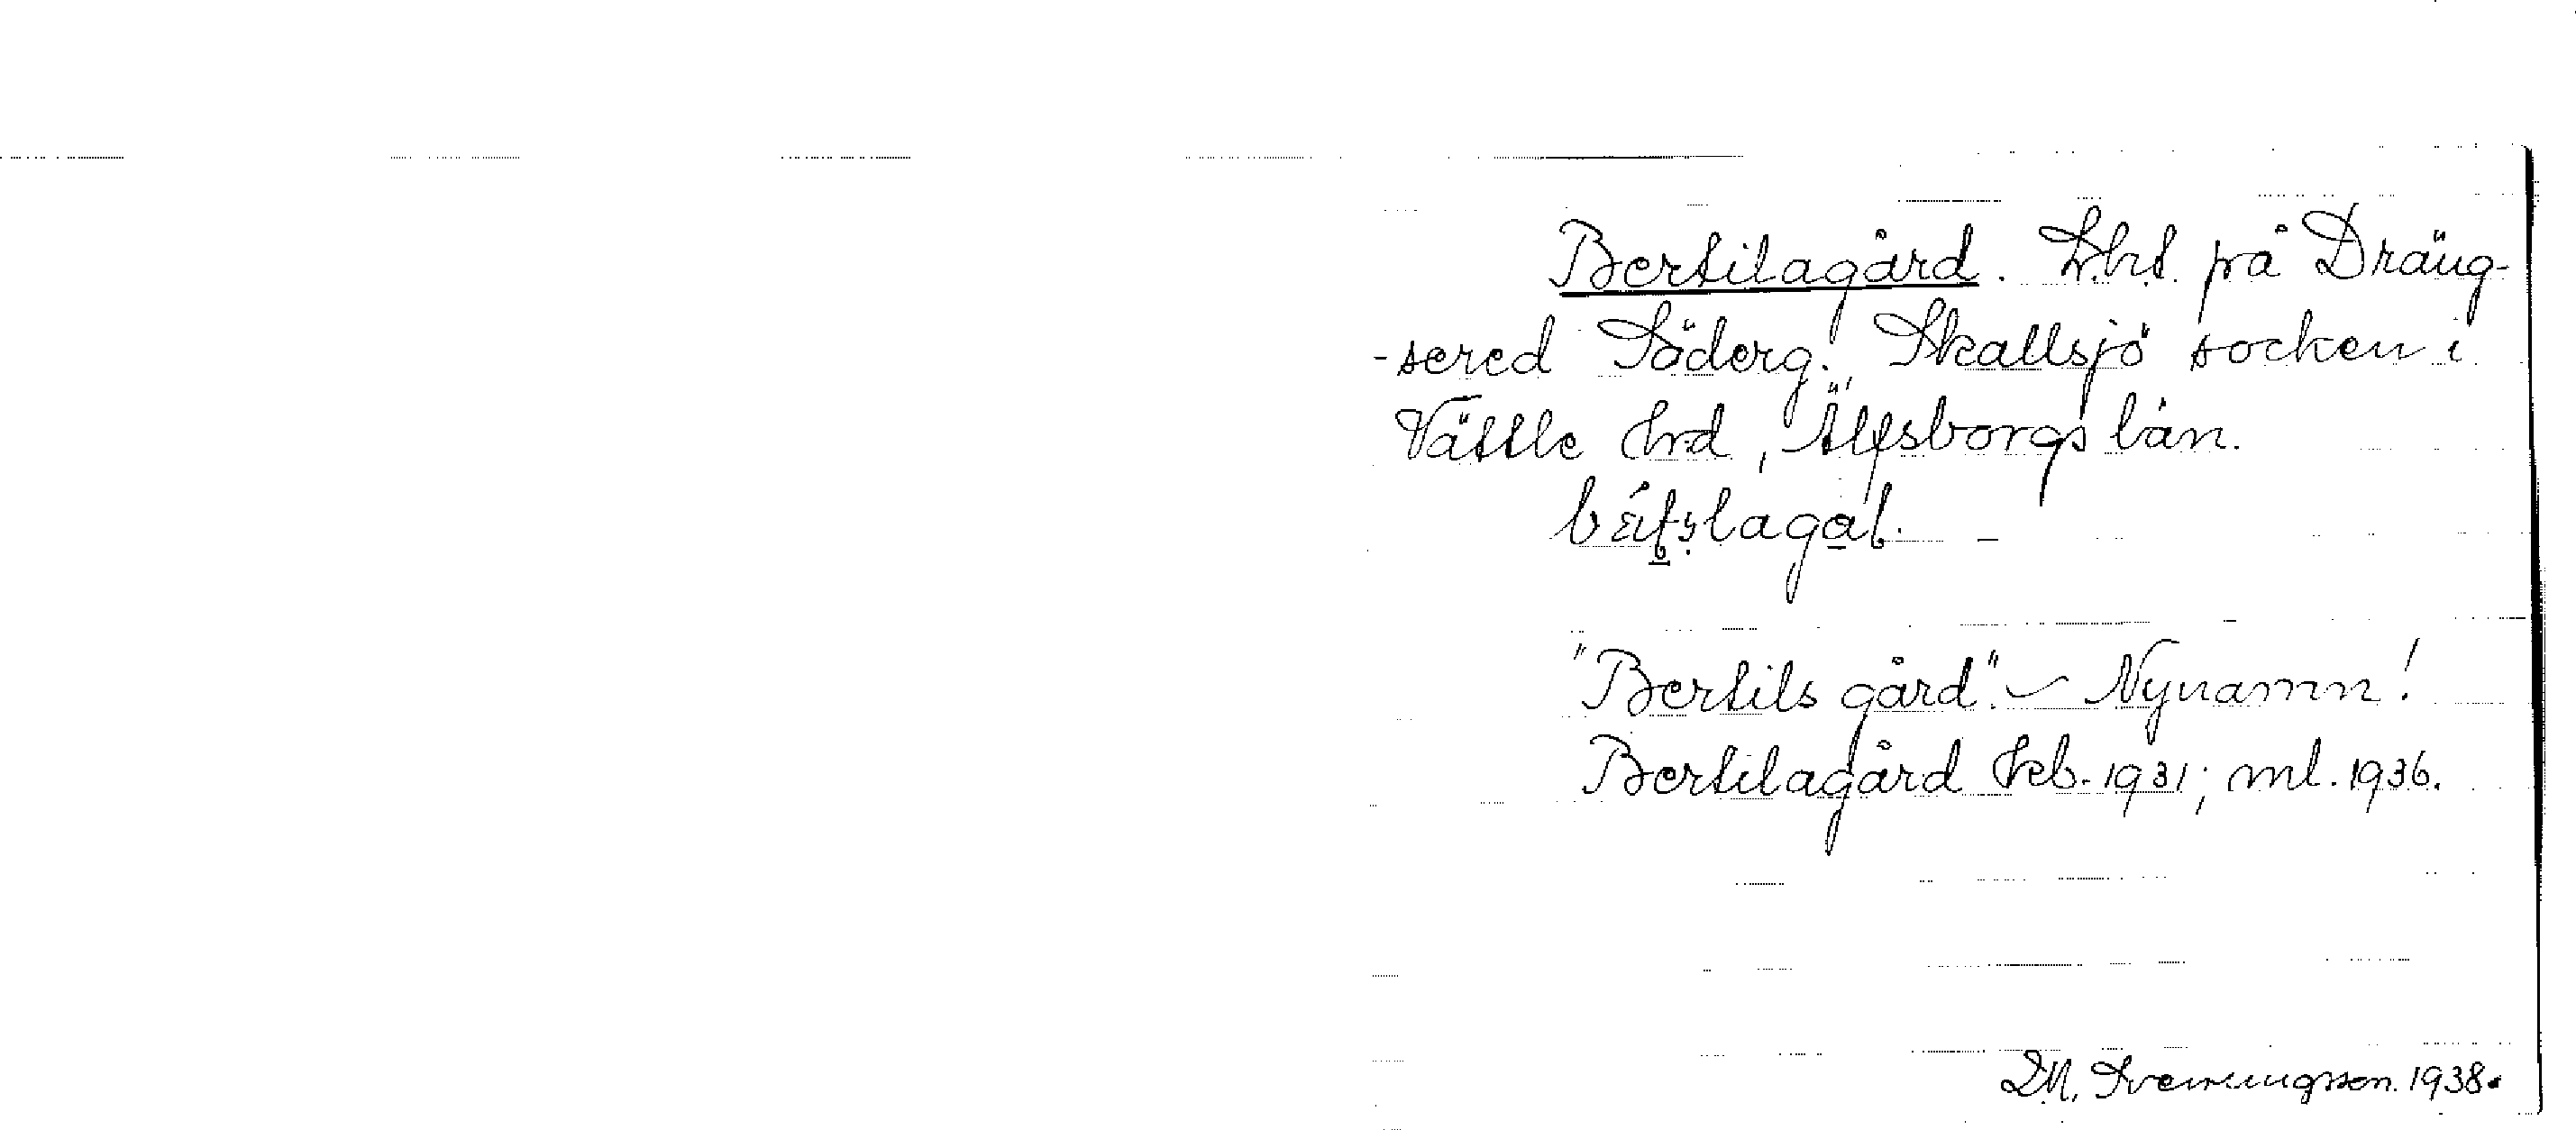 Bertilagård. Lht. på Dräng-
-sered Söderg. Skallsjö socken i
Vättle hrd, Älfsborgs län.
"Bertils gård". - Nynamn!
Bertilagård Hcb. 1931; ml. 1936.
D.N. Svenningsson. 1938.